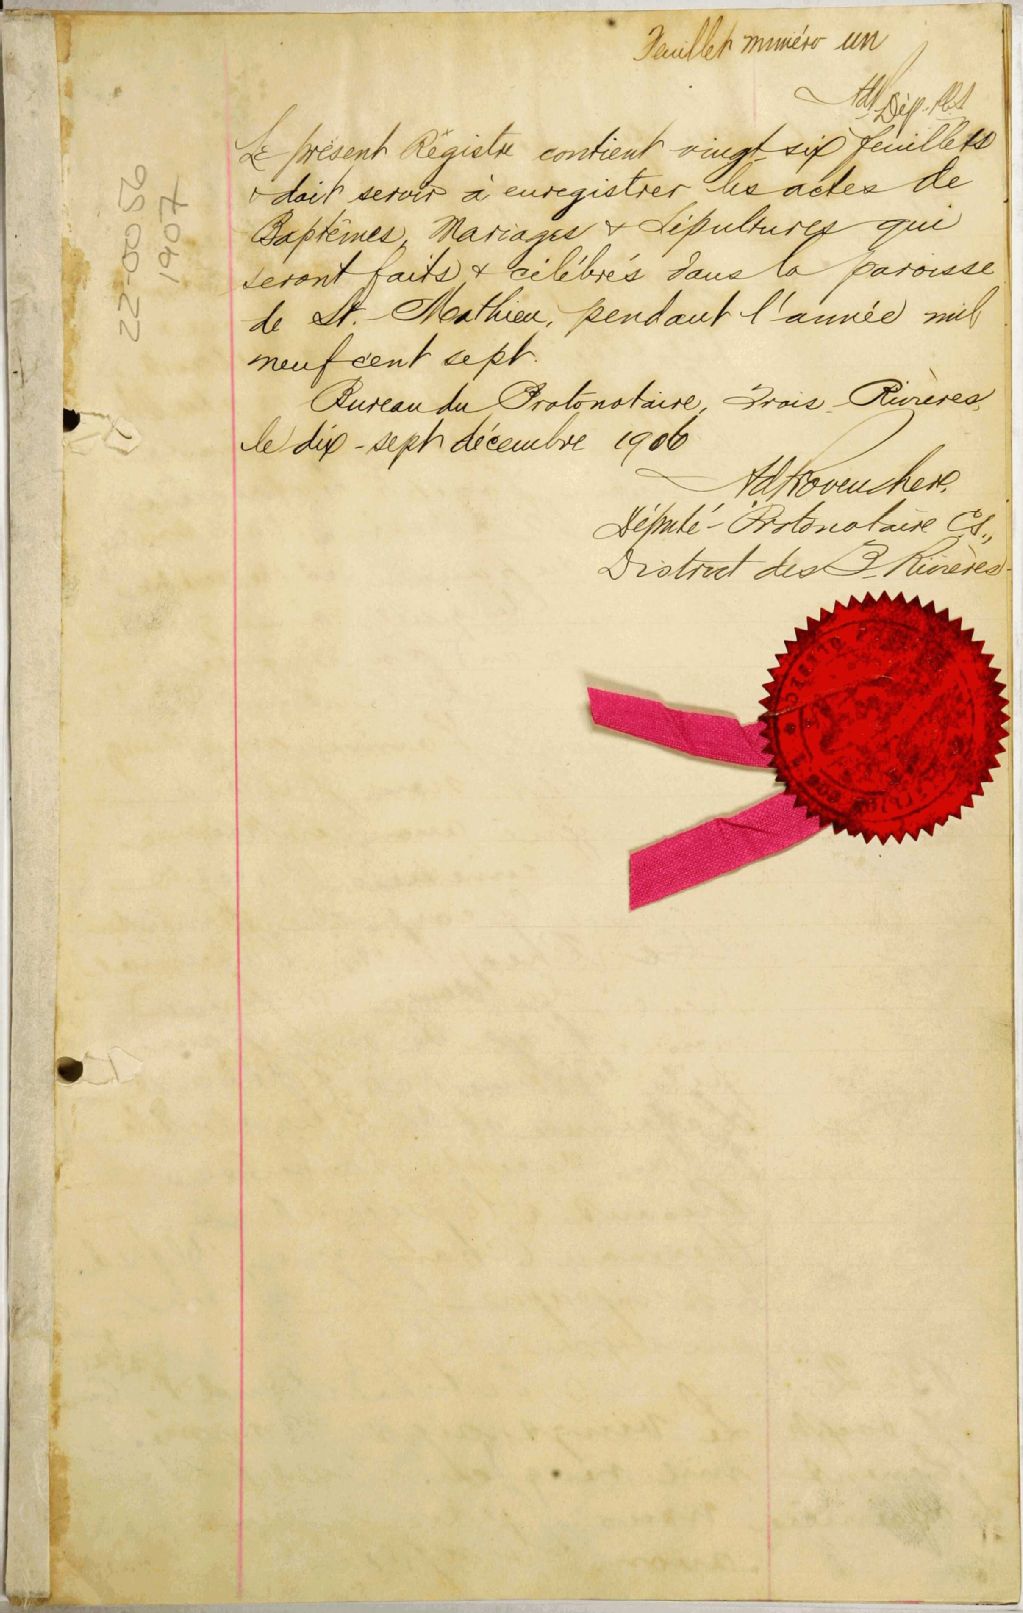 Feuillet numéro un
AdP Dép. P.C.S
Le présent Régistre contient vingt-six feuillets
& doit servir à enregistrer les actes de
Baptêmes, Mariages & Sépultures qui
seront faits & célébrés dans la paroisse
de St. Mathieu, pendant l'année mil
neuf cent sept.
Bureau du Protonotaire, Trois-Rivières,
le dix-sept décembre 1906
Ad Provencher,
Député-Protonotaire C.S.,
District des 3-Rivières-
22-0056
1907